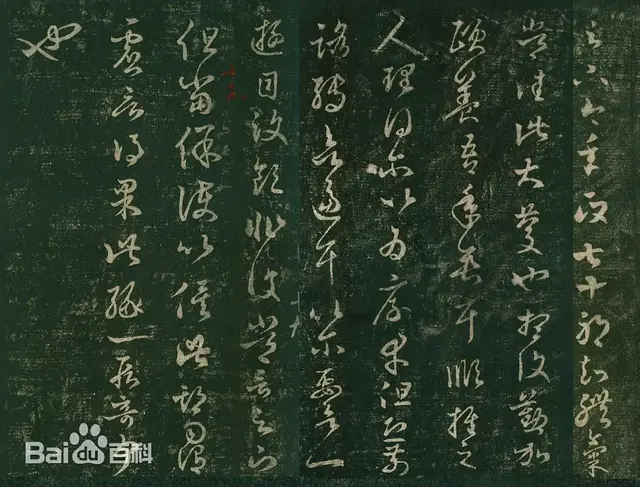 足下今年政七十耶知體氣
常佳此大慶也想復勤加
頤養吾年垂耳順推之
人理得爾以為厚幸但恐前
路轉欲逼耳以爾要欲一
遊目汶領非復常言足下
但當保護以俟此期勿謂
虛言得果此緣一段奇事
也
Bai du 百科